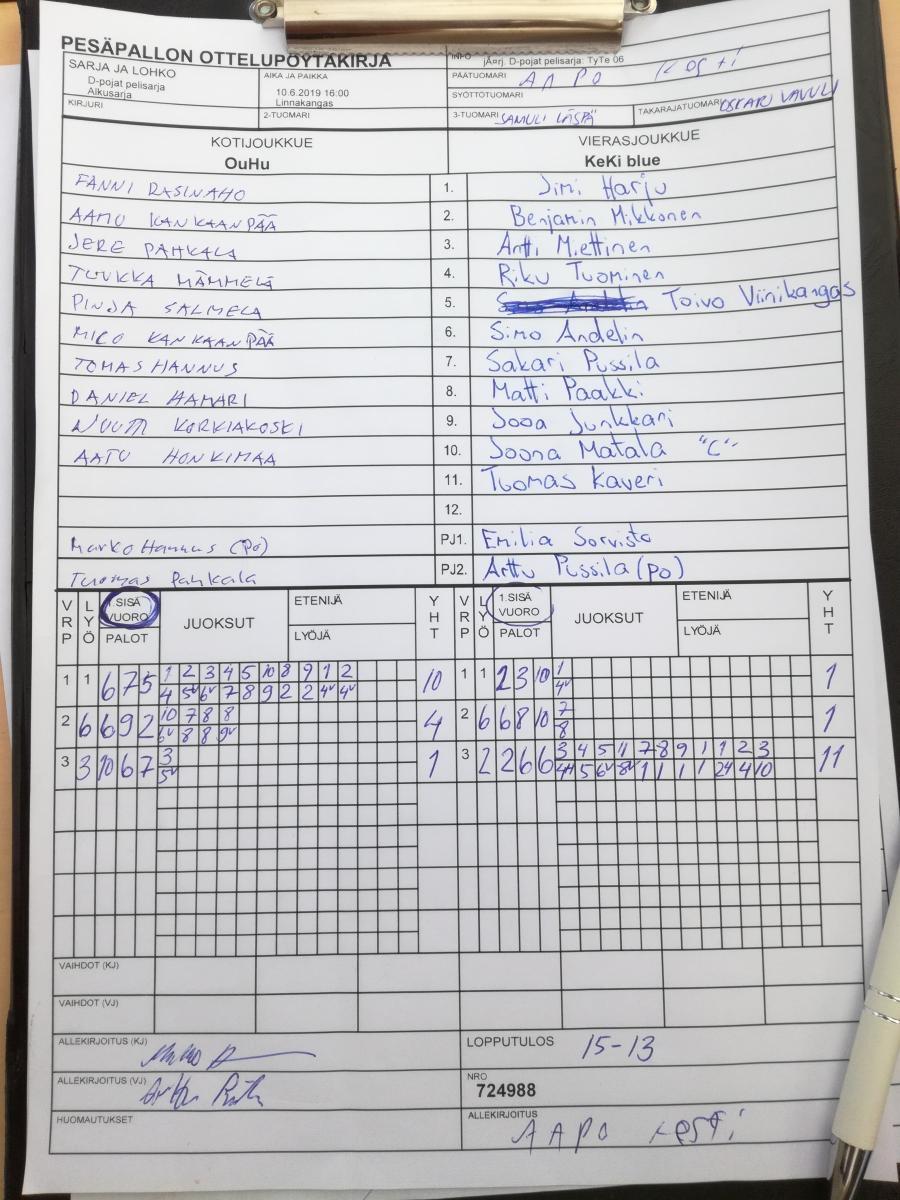 PESÄPALLON OTTELUPÖYTÄKIRJA
INFO jÃ¤rj. D-pojat pelisarja: TyTe 06
SARJA JA LOHKO
D-pojat pelisarja
Alkusarja
AIKA JA PAIKKA
10.6.2019 16:00
Linnakangas
PÄÄTUOMARI AAPO KOSTI
SYÖTTÖTUOMARI
KIRJURI
2-TUOMARI
3-TUOMARI SAMULI
TAKARAJATUOMARI OSKARI
KOTIJOUKKUE
OuHu
VIERASJOUKKUE
KeKi blue
FANNI RASINAHO 1. Jimi Harju
AAMU KANKAANPÄÄ 2. Benjamin Mikkonen
JERE PAHKALA 3. Antti Miettinen
TUUKKA MÄMMELÄ 4. Riku Tuominen
PINJA SALMELA 5. Toivo Viinikangas
MICO KANKAANPÄÄ 6. Simo Andelin
TOMAS HANNUS 7. Sakari Pussila
DANIEL HAMARI 8. Matti Paakki
KORKIAKOSKI 9. Jooa Junkkari
AATU HONKIMAA 10. Joona Matala "C"
11. Tuomas Kaveri
12.
Marko Hannus (PO) PJ1. Emilia Sorvisto
Tuomas Pahkala PJ2. Arttu Pussila (PO)
VRP LYÖ 1.SISÄ VUORO PALOT JUOKSUT ETENIJÄ LYÖJÄ YHT VRP LYÖ 1.SISÄ VUORO PALOT JUOKSUT ETENIJÄ LYÖJÄ YHT
1 1 6 7 5 1 2 3 4 5 10 8 9 1 2 10 1 1 2 3 10 1 1
4 5v 6v 7 8 9 2 2 4v 4v 4v
2 6 6 9 2 10 7 8 8 4 2 6 6 8 10 7 1
6v 8 8 9v 8
3 3 10 6 7 3 1 3 2 2 6 6 3 4 5 11 7 8 9 1 1 2 3 11
5v 5 6v 8v 1 1 1 1 4 10
VAIHDOT (KJ)
VAIHDOT (VJ)
ALLEKIRJOITUS (KJ)
LOPPUTULOS 15-13
ALLEKIRJOITUS (VJ)
NRO
724988
HUOMAUTUKSET
ALLEKIRJOITUS AAPO KOSTI